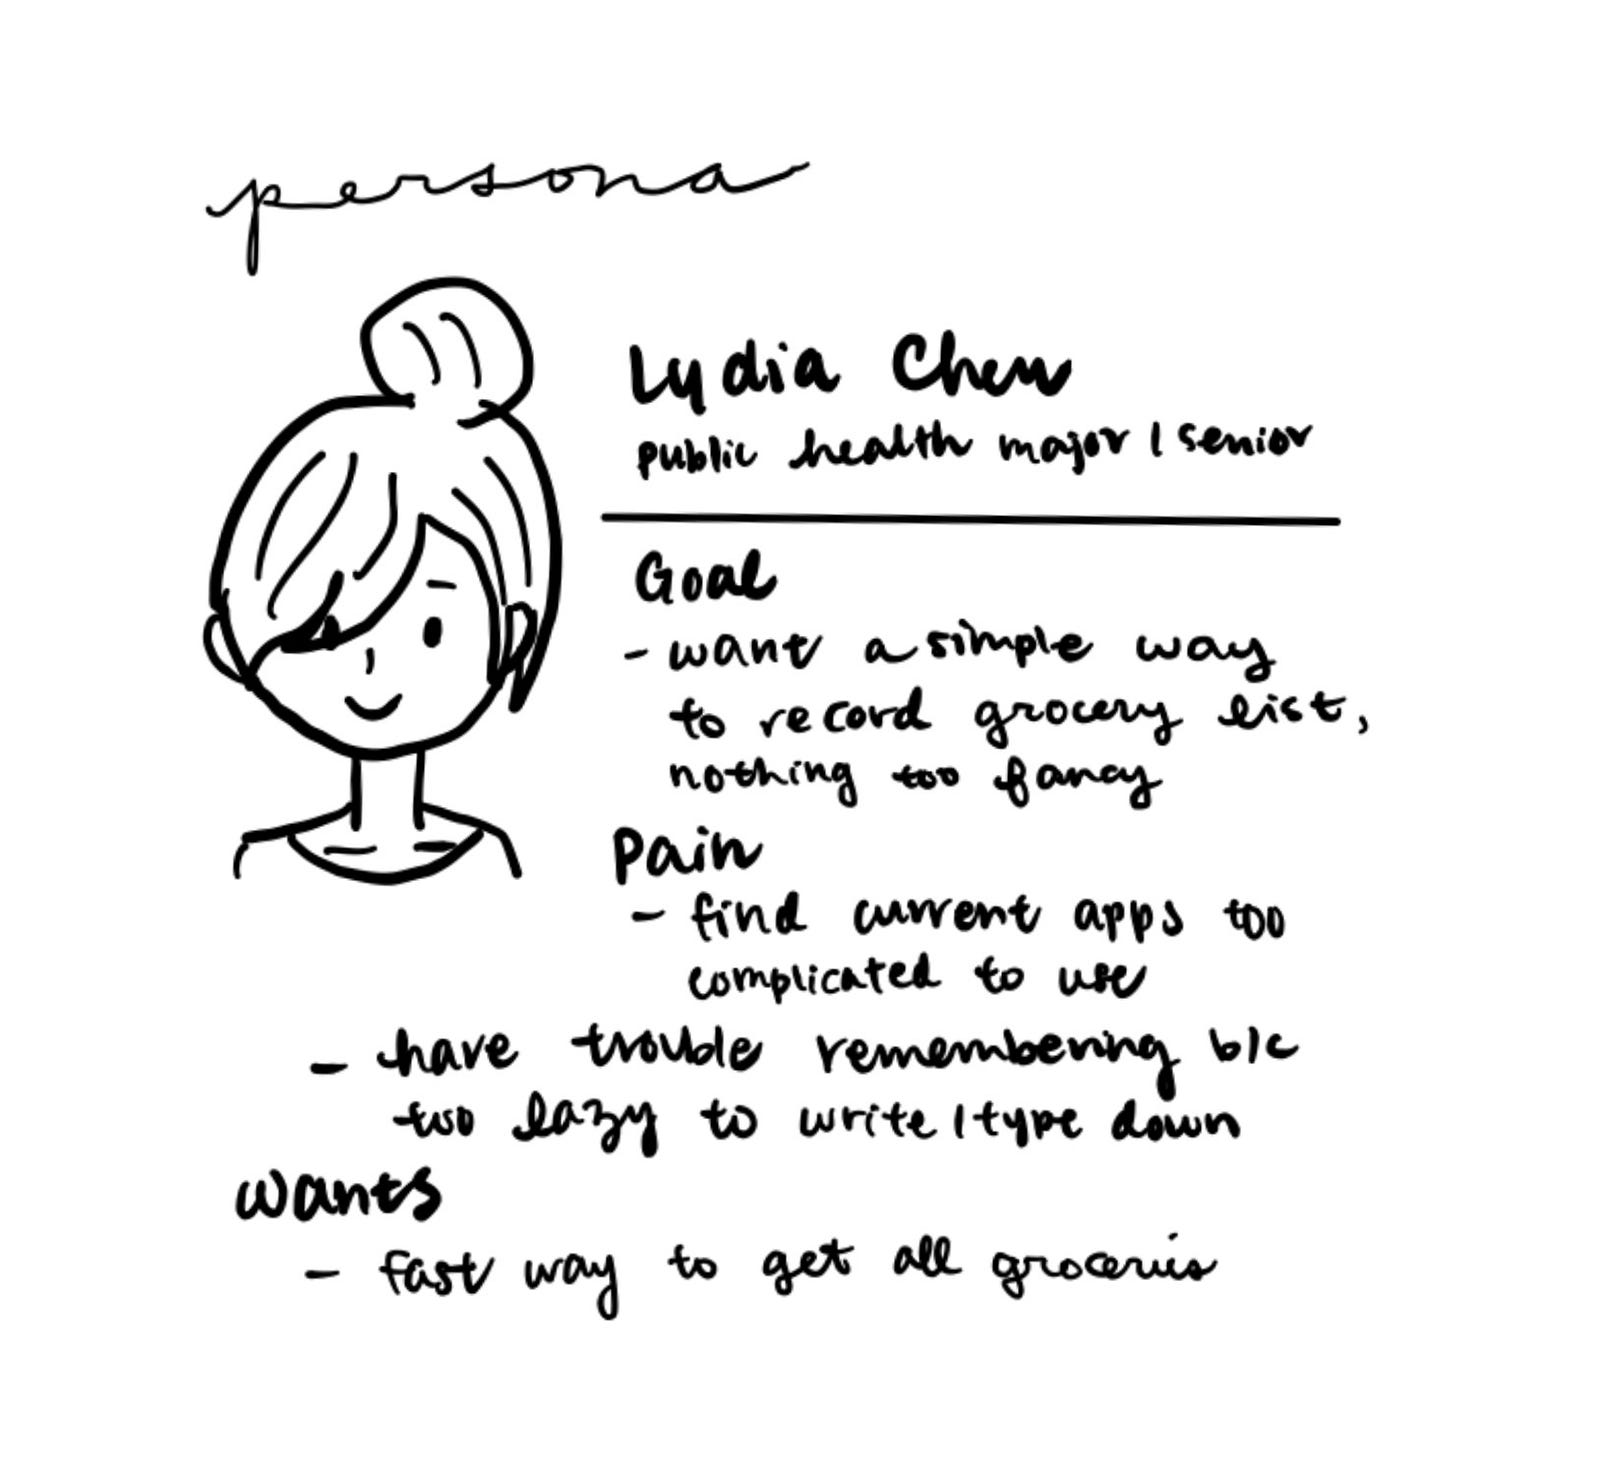 persona
Lydia Chen
public health major / senior
Goal
- want a simple way
to record grocery list,
nothing too fancy
Pain
- find current apps too
complicated to use
- have trouble remembering b/c
too lazy to write / type down
Wants
- fast way to get all groceries